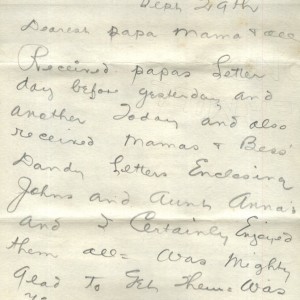 29th
Dearest papa Mama & all
Received papas letter
day before yesterday and
another Today and also
received Mamas & Bess'
Dandy letters Enclosing
Johns and Aunt Anna's
and I Certainly Enjoyed
them all = Was Mighty
Glad To Get Them = Was